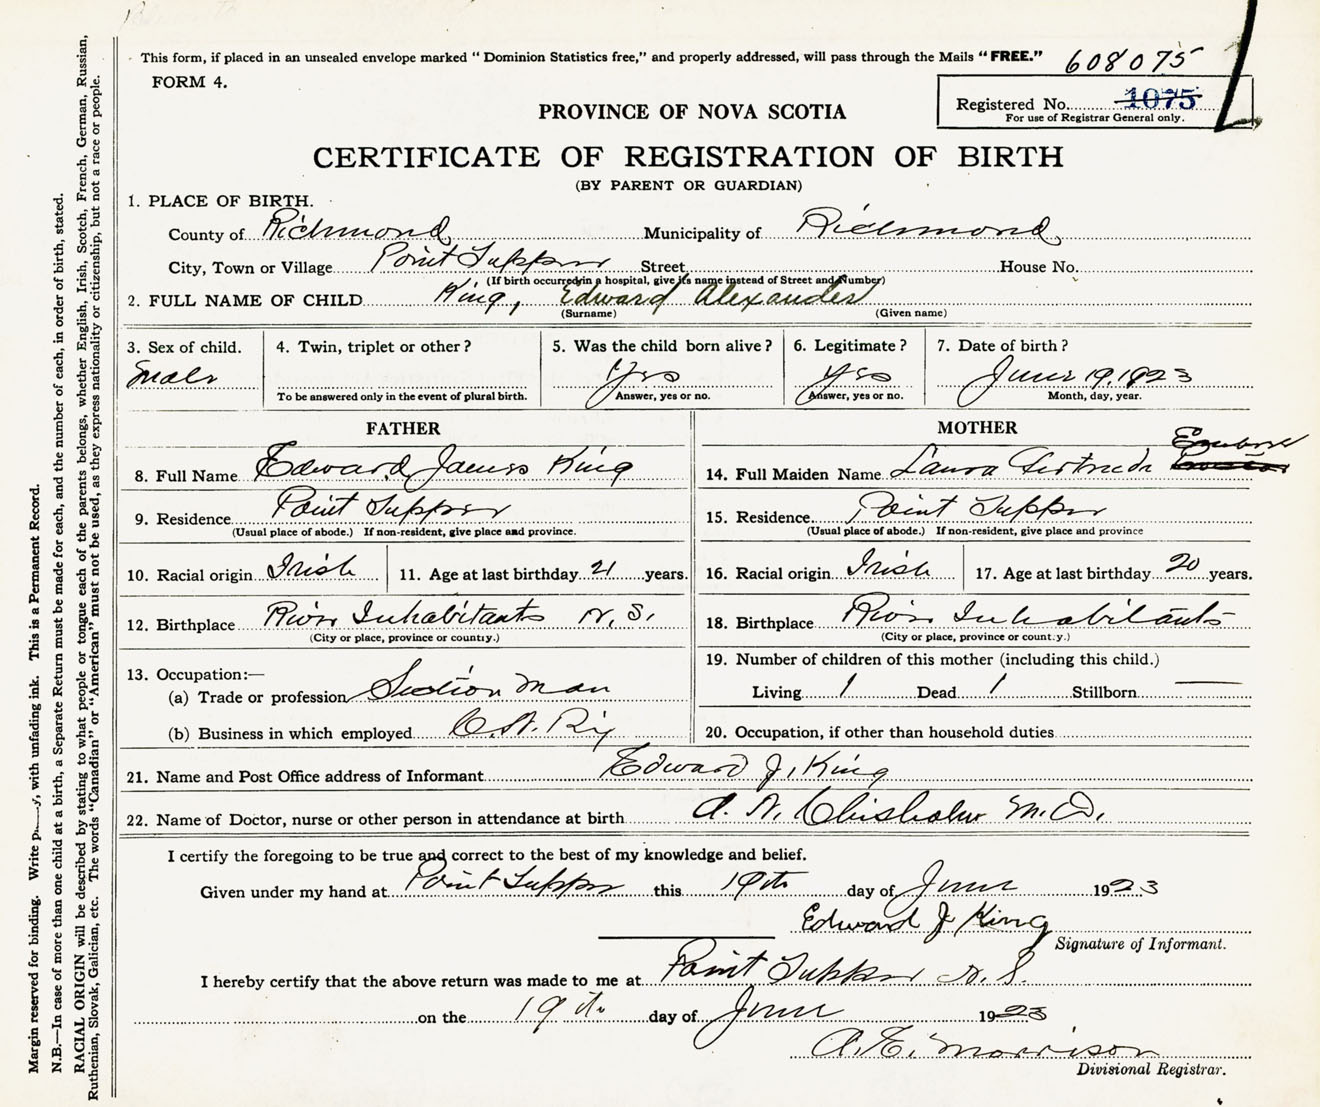 This form, if placed in an unsealed envelope marked "Dominion Statistics free," and properly addressed, will pass through the Mails "FREE."
608075
FORM 4.
Registered No. 1075
For use of Registrar General only.
PROVINCE OF NOVA SCOTIA
CERTIFICATE OF REGISTRATION OF BIRTH
(BY PARENT OR GUARDIAN)
1. PLACE OF BIRTH.
County of Richmond Municipality of Richmond
City, Town or Village Point Tupper Street House No.
(If birth occurred in a hospital, give its name instead of Street and Number)
2. FULL NAME OF CHILD King, Edward Alexander
(Surname) (Given name)
3. Sex of child. 4. Twin, triplet or other? 5. Was the child born alive? 6. Legitimate? 7. Date of birth?
Male Yes Yes June 19, 1923
To be answered only in the event of plural birth. Answer, yes or no. Answer, yes or no. Month, day, year.
FATHER
8. Full Name Edward James King
9. Residence Point Tupper
(Usual place of abode.) If non-resident, give place and province.
10. Racial origin Irish 11. Age at last birthday 21 years.
12. Birthplace River Inhabitants N.S.
(City or place, province or country.)
13. Occupation:—
(a) Trade or profession Section Man
(b) Business in which employed C.N. Ry
MOTHER
14. Full Maiden Name Laura Gertrude
15. Residence Point Tupper
(Usual place of abode.) If non-resident, give place and province
16. Racial origin Irish 17. Age at last birthday 20 years.
18. Birthplace River Inhabitants
(City or place, province or country.)
19. Number of children of this mother (including this child.)
Living 1 Dead 1 Stillborn —
20. Occupation, if other than household duties
21. Name and Post Office address of Informant Edward J. King
22. Name of Doctor, nurse or other person in attendance at birth A. N. Chisholm M.D.
I certify the foregoing to be true and correct to the best of my knowledge and belief.
Given under my hand at Point Tupper this 19th day of June 1923
Edward J King
Signature of Informant.
I hereby certify that the above return was made to me at Point Tupper N.S.
on the 19th day of June 1923
A. E. Morrison
Divisional Registrar.
Margin reserved for binding. Write with unfading ink. This is a Permanent Record.
N.B.—In case of more than one child at a birth, a Separate Return must be made for each, and the number of each, in order of birth, stated.
RACIAL ORIGIN will be described by stating to what people or tongue each of the parents belongs, whether English, Irish, Scotch, French, German, Russian,
Ruthenian, Slovak, Galician, etc. The words "Canadian" or "American" must not be used, as they express nationality or citizenship, but not a race or people.